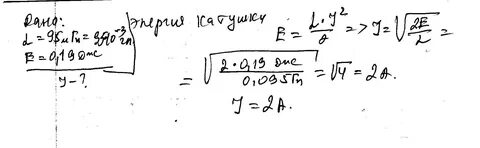 Дано:
L = 95мГн = 95·10⁻³Гн
E = 0,19 Дж
J - ?
Энергия катушки
E = L·J²/2 => J = √(2E/L) =
= √(2·0,19 Дж / 0,095Гн) = √4 = 2А.
J = 2А.